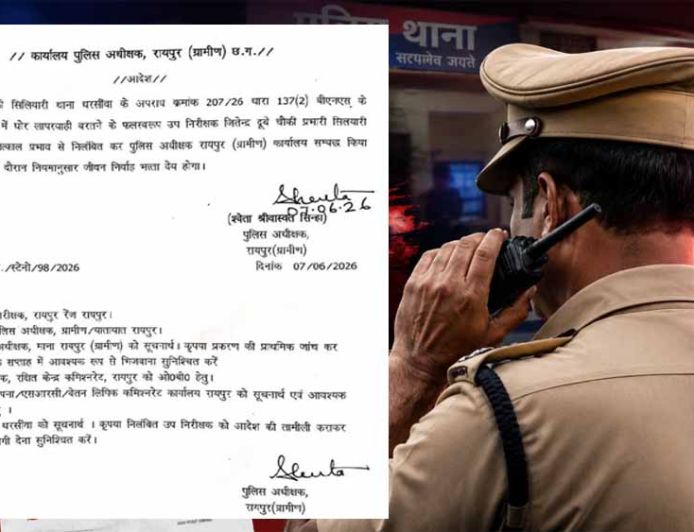 // कार्यालय पुलिस अधीक्षक, रायपुर (ग्रामीण) छ.ग.//
//आदेश//
सिलियारी थाना धरसींवा के अपराध क्रमांक 207/26 धारा 137(2) बीएनएस् के
में घोर लापरवाही बरतने के फलस्वरूप उप निरीक्षक जितेन्द्र दूबे चौकी प्रभारी सिलयारी
त्काल प्रभाव से निलंबित कर पुलिस अधीक्षक रायपुर (ग्रामीण) कार्यालय सम्बद्ध किया
दौरान नियमानुसार जीवन निर्वाह भत्ता देय होगा।
07.06.26
(श्वेता श्रीवास्तव सिन्हा)
पुलिस अधीक्षक,
रायपुर(ग्रामीण)
./स्टेनो/98/2026 दिनांक 07/06/2026
रीक्षक, रायपुर रेंज रायपुर।
लिस अधीक्षक, ग्रामीण/यातायात रायपुर।
अधीक्षक, माना रायपुर (ग्रामीण) को सूचनार्थ। कृपया प्रकरण की प्राथमिक जांच कर
सप्ताह में आवश्यक रूप से भिजवाना सुनिश्चित करें
क, रक्षित केन्द्र कमिश्नरेट, रायपुर को ओ0बी0 हेतु।
पना/एसआरसी/वेतन लिपिक कमिश्नरेट कार्यालय रायपुर को सूचनार्थ एवं आवश्यक
।
धरसींवा को सूचनार्थ । कृपया निलंबित उप निरीक्षक को आदेश की तामीली कराकर
गी देना सुनिश्चित करें।
पुलिस अधीक्षक,
रायपुर(ग्रामीण)
पुलिस थाना
सत्यमेव जयते